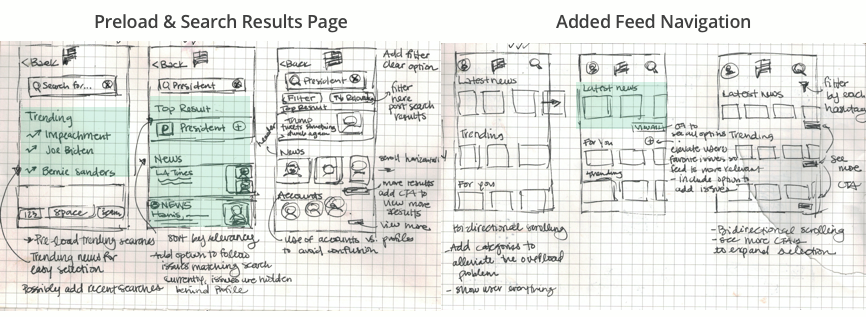 Preload & Search Results Page
Added Feed Navigation
<Back
Search for...
Trending
Impeachment
Joe Biden
Bernie Sanders
123
space
→ Pre-load trending searches
Trending news for
easy selection
Possibly add recent searches
<Back
President
Top Result
President
News
LA Times
NEWS
Harris,
sort key relevancy
Add option to follow
issues matching search
currently, issues are hidden
behind Profile
<Back
President
Filter
Top Result
Trump
tweets something
dumb again
header
News
Accounts
Add filter
clear option
filter
here
post search
results
scroll horizontal
more results
add CTA to
view more
results
view more
use of accounts vs. profiles
to avoid confusion
Latest news
Trending
For you
Bi-directional scrolling
- Add categories to
alleviate the overload
problem
- show user everything
Latest news
View All
For you
trending
CTA to
favorite issues so
feed is more relevant
- include option to
add issues
Latest News
Trending
filter
by each
hashtag
see
more
CTA
- Bidirectional scrolling
- see more CTA's
to expand selection